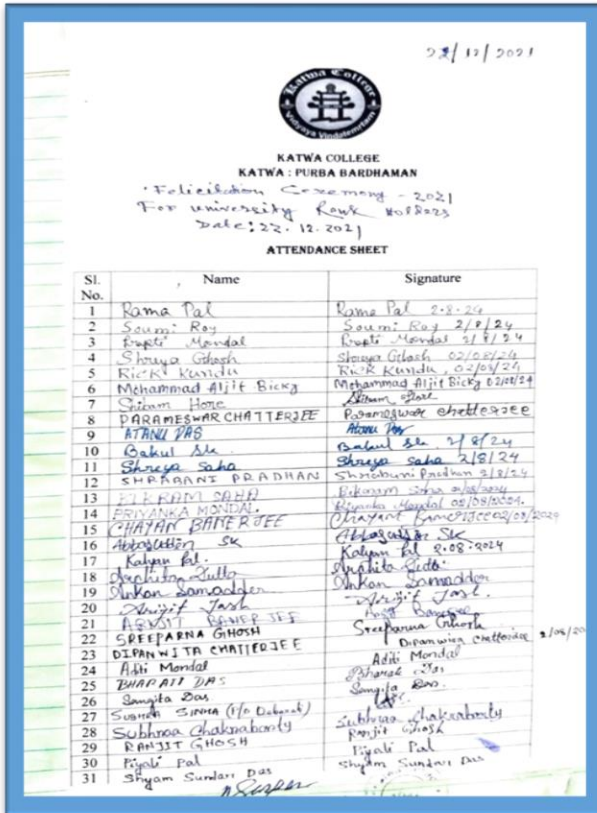 22/12/2021
Katwa College
Vidyaya Vindatemritam
KATWA COLLEGE
KATWA : PURBA BARDHAMAN
Felicitation Ceremony - 2021
For university Rank
Date: 22.12.2021
ATTENDANCE SHEET
Sl. No. Name Signature
1 Rama Pal Rama Pal 2.8.24
2 Soumi Roy Soumi Roy 2/8/24
3 Prapti Mondal Prapti Mondal 2/8/24
4 Shreya Ghosh Shreya Ghosh 02/08/24
5 Rick Kundu Rick Kundu, 02/08/24
6 Mohammad Aljit Bicky Mohammad Aljit Bicky 02/08/24
7 Shibam Hore
8 PARAMESWAR CHATTERJEE Parameswar chatterjee
9 ATANU DAS Atanu Das
10 Bakul Sk. Bakul Sk 2/8/24
11 Shreya saha Shreya saha 2/8/24
12 SHRABANI PRADHAN Shrabani Pradhan 2/8/24
13 BIKRAM SAHA Bikram Saha
14 PRIYANKA MONDAL. Priyanka Mondal 02/08/2024.
15 CHAYAN BANERJEE Chayan Banerjee 02/08/2024
16 Abbasuddin SK Abbasuddin SK
17 Kalyan Pal. Kalyan Pal 2.08.2024
18 Arphita Dutta Arphita Dutta
19 Ankan Samadder Ankan Samadder
20 Arijit Jash Arijit Jash.
21 ARIJIT BANERJEE Banerjee
22 SREEPARNA GHOSH Sreeparna Ghosh
23 DIPANWITA CHATTERJEE Dipanwita Chatterjee
24 Aditi Mondal Aditi Mondal
25 BHARATI DAS Bharati Das
26 Sangita Das Sangita Das.
27 SUBHRA SINHA
28 Subhraa Chakraborty Subhraa Chakraborty
29 RANJIT GHOSH Ranjit Ghosh
30 Piyali Pal Piyali Pal
31 Shyam Sundari Das Shyam Sundari Das